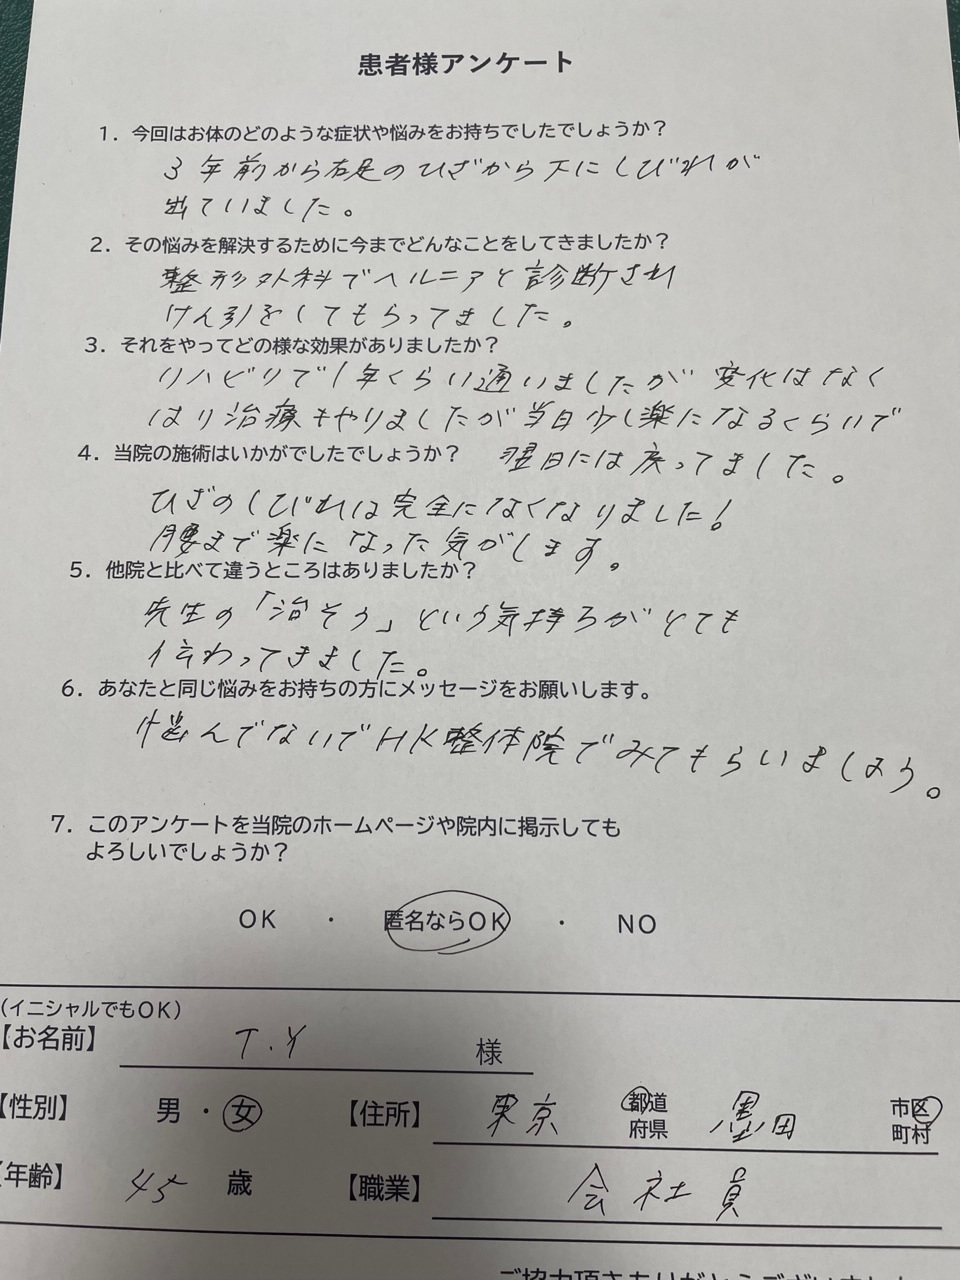 患者様アンケート
1．今回はお体のどのような症状や悩みをお持ちでしたでしょうか？
3年前から右足のひざから下にしびれが
出ていました。
2．その悩みを解決するために今までどんなことをしてきましたか？
整形外科でヘルニアと診断され
けん引をしてもらってました。
3．それをやってどの様な効果がありましたか？
リハビリで1年くらい通いましたが変化はなく
はり治療もやりましたが当日少し楽になるくらいで
翌日には戻ってました。
4．当院の施術はいかがでしたでしょうか？
ひざのしびれは完全になくなりました!
腰まで楽になった気がします。
5．他院と比べて違うところはありましたか？
先生の「治そう」という気持ちがとても
伝わってきました。
6．あなたと同じ悩みをお持ちの方にメッセージをお願いします。
悩んでないでHK整体院でみてもらいましょう。
7．このアンケートを当院のホームページや院内に掲示しても
よろしいでしょうか？
OK ・ 匿名ならOK ・ NO
（イニシャルでもOK）
【お名前】 T.Y 様
【性別】 男・女 【住所】 東京 都道府県 墨田 市区町村
【年齢】 45 歳 【職業】 会社員
ご協力頂きありがとうございました